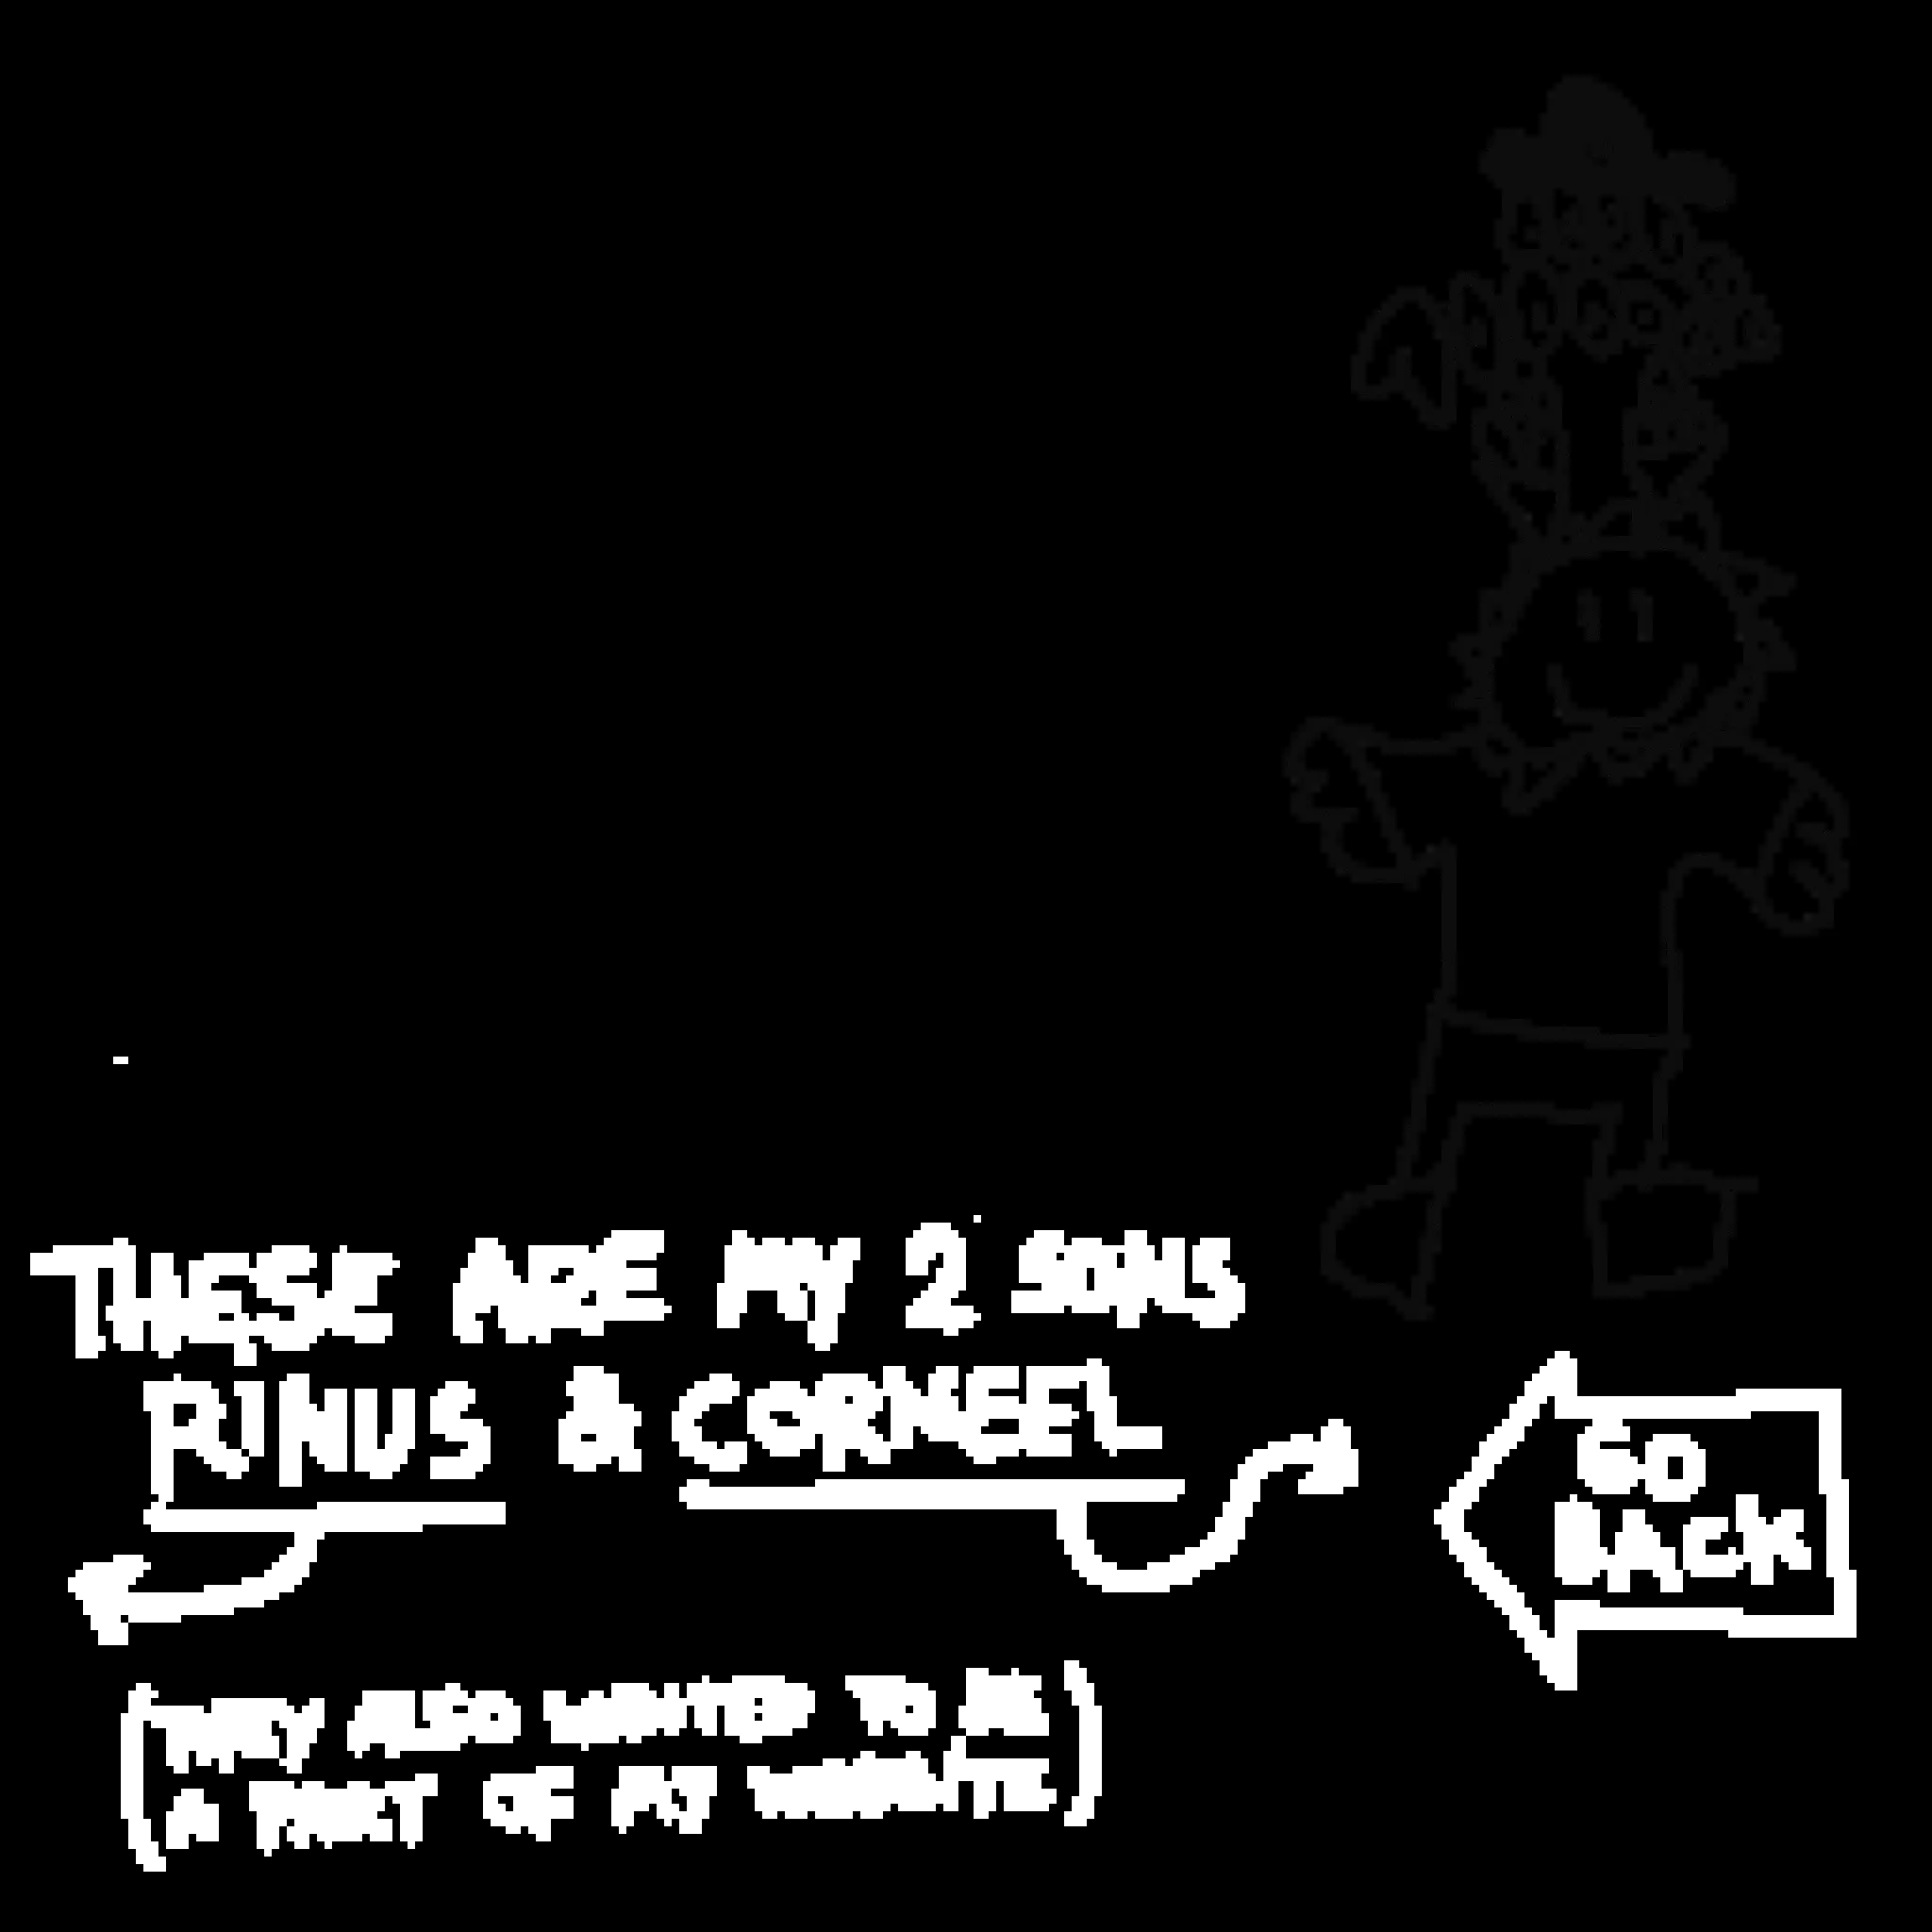 THESE ARE MY 2 SONS
RINUS & CORNEEL
(THEY ALSO WANTED TO BE
A PART OF MY WEBSITE)
GO
BACK